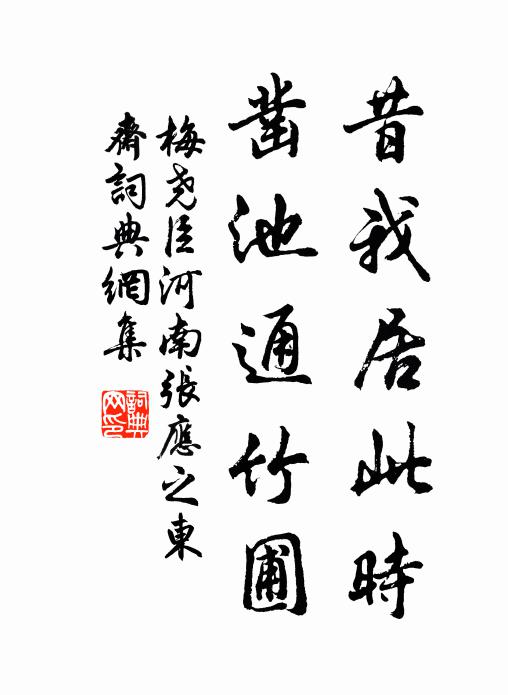 昔我居此時
凿池通竹圃
梅堯臣河南張應之東
齋詞典網集
詞典
网印